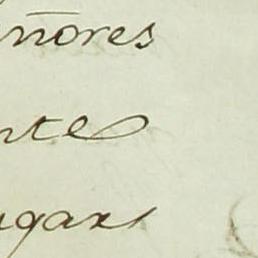 ñores
nte
ugar